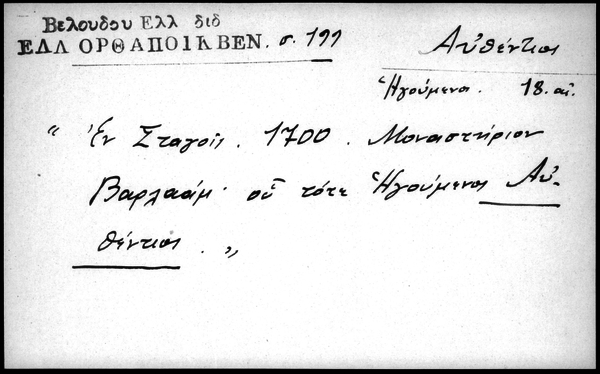 Βελουδου Ελλ διδ
ΕΛΛ ΟΡΘ ΑΠΟΙΚ ΒΕΝ. σ. 199
Αὐθέντιος
Ἡγούμενος. 18. αἰ.
" Ἐν Σταγοῖς. 1700. Μοναστήριον
Βαρλαάμ· οὗ τότε Ἡγούμενος Αὐ-
θέντιος. "